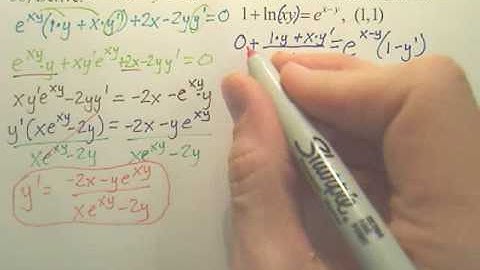 e^xy(1·y+x·y')+2x-2yy'=0
e^xy·y+xy'e^xy+2x-2yy'=0
xy'e^xy-2yy'=-2x-e^xy·y
y'(xe^xy-2y)=-2x-ye^xy
xe^xy-2y xe^xy-2y
y'=-2x-ye^xy
xe^xy-2y
1+ln(xy)=e^x-y, (1,1)
0+1·y+x·y'=e^x-y(1-y')
Sharpie